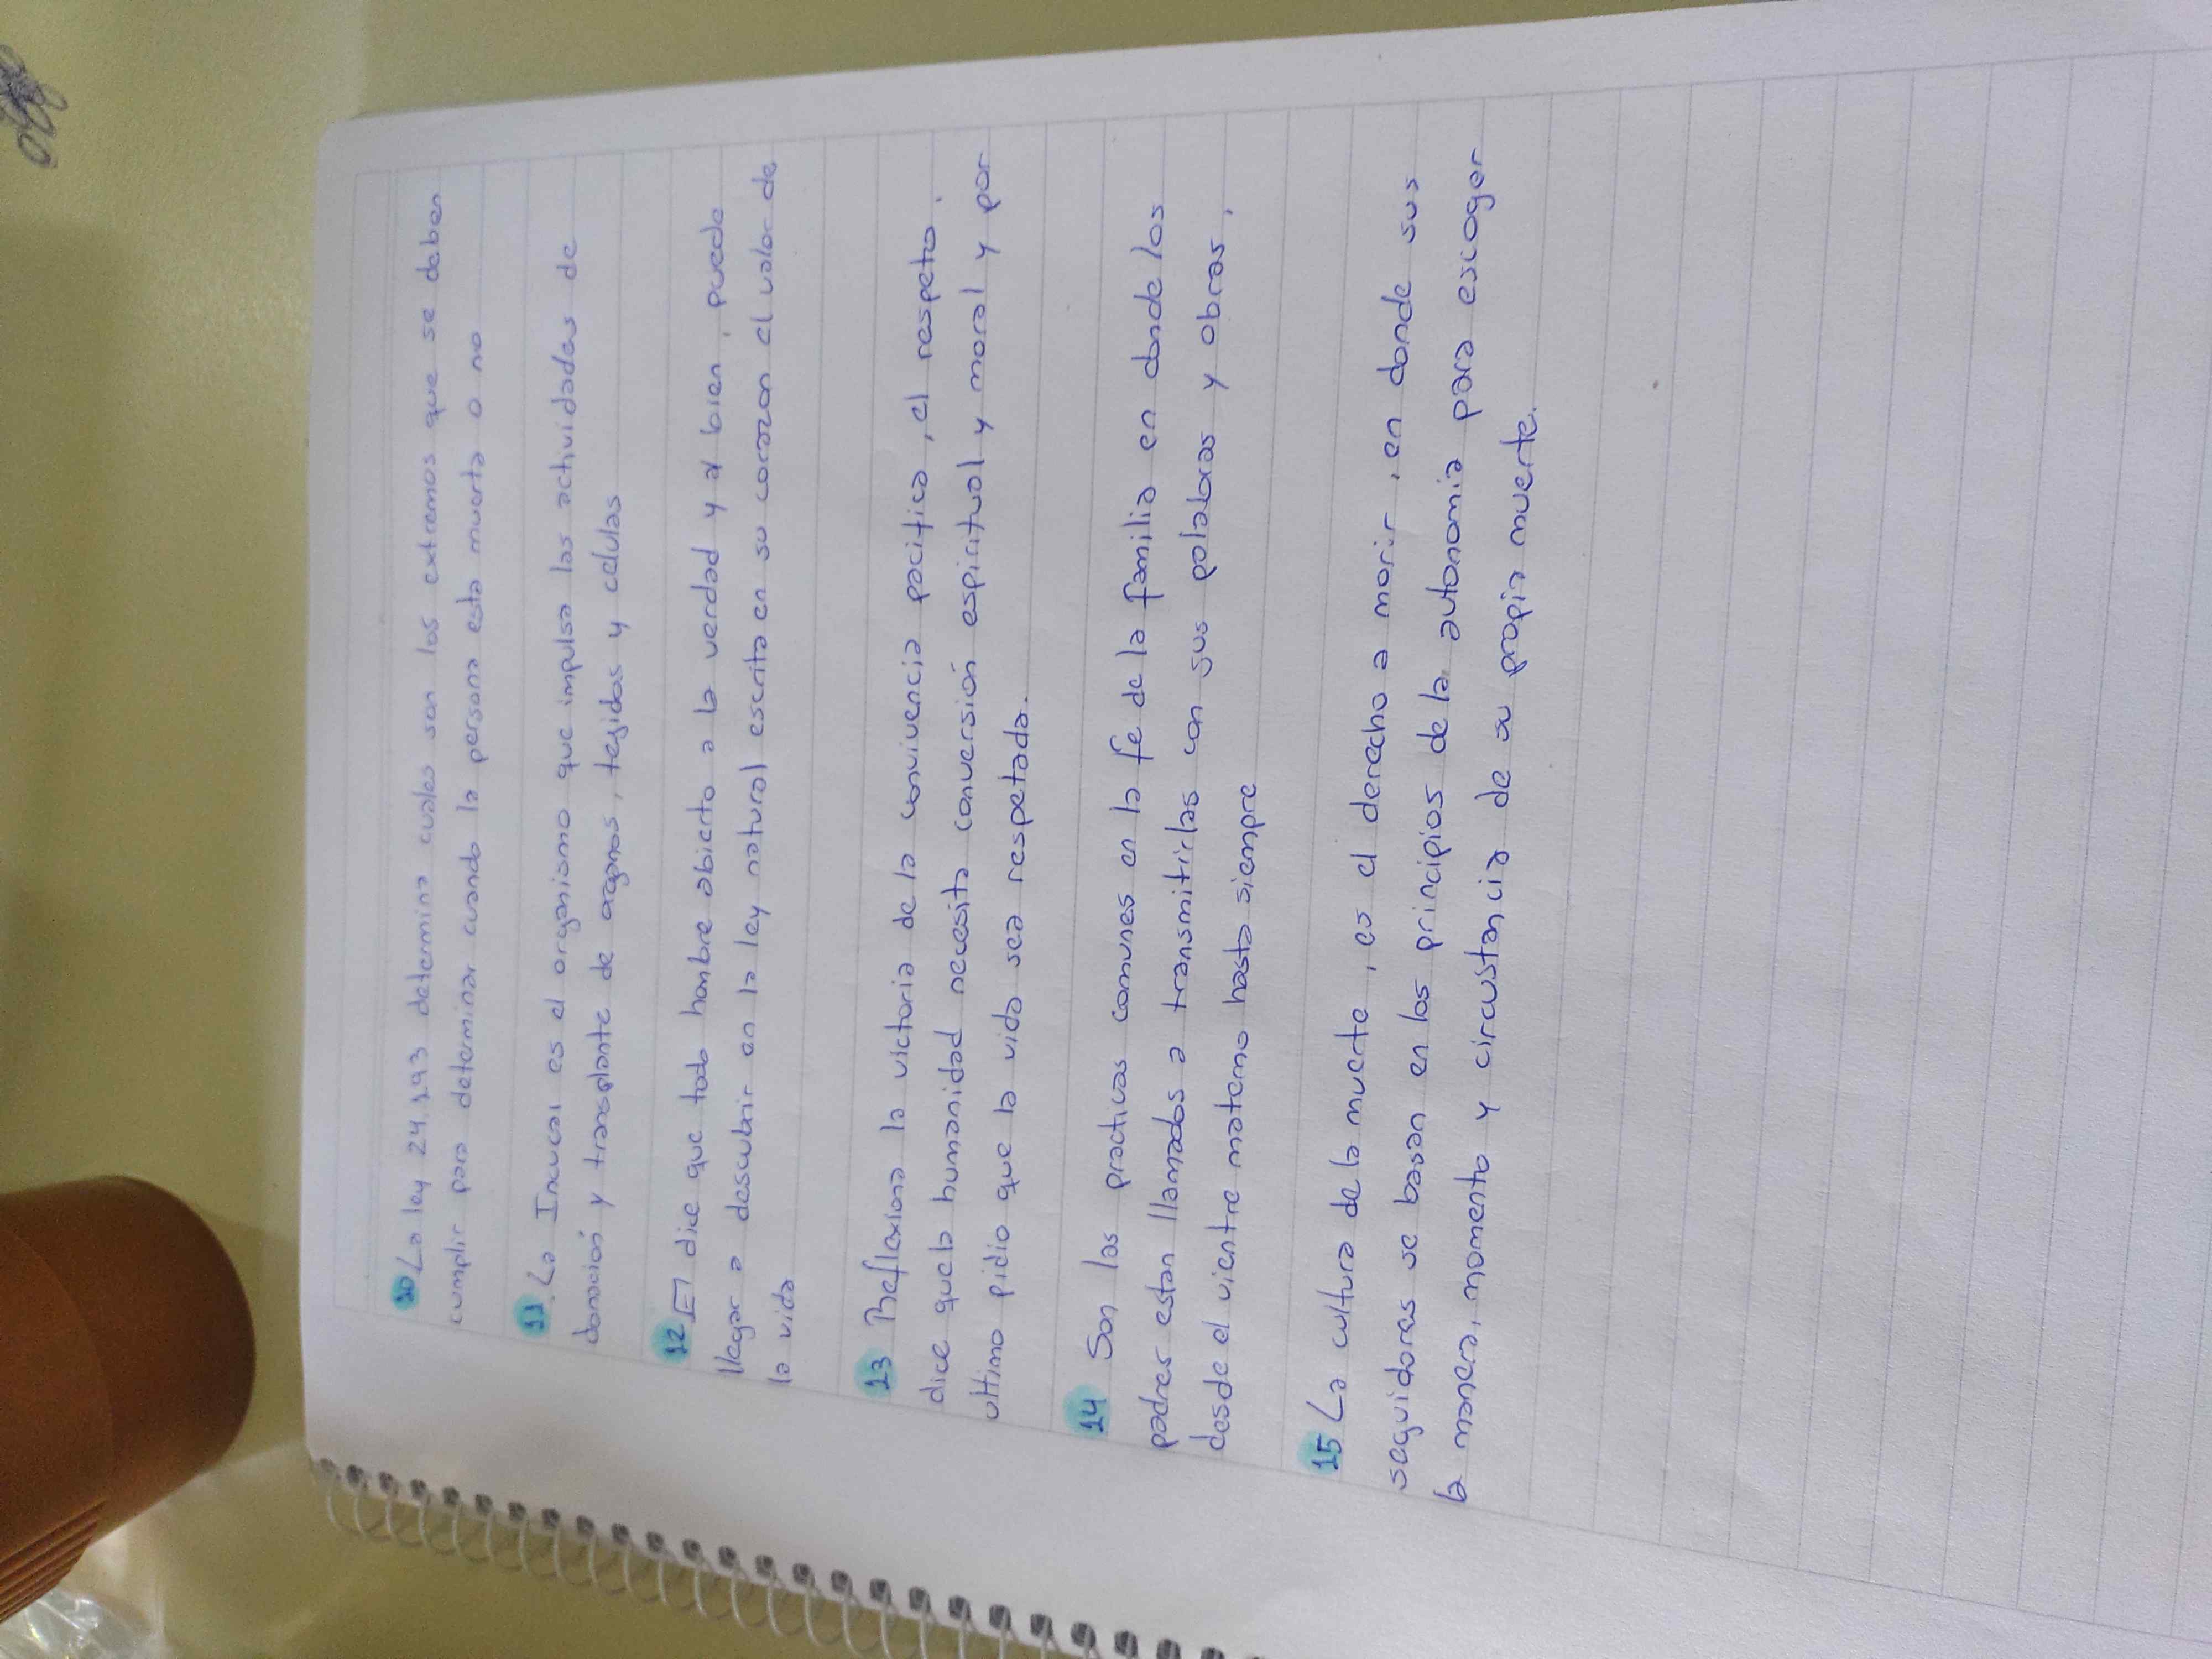 10 La ley 24.193 determina cuales son los extremos que se deben
cumplir para determinar cuando la persona esta muerta o no
11. La Incucai es el organismo que impulsa las actividades de
donación y transplante de organos, tejidos y celulas
12 El dice que todo hombre abierto a la verdad y al bien, puede
llegar a descubrir en la ley natural escrita en su corazon el valor de
la vida
13 Reflexiona la victoria de la convivencia pacifica, el respeto,
dice que la humanidad necesita conversión espiritual y moral y por
ultimo pidio que la vida sea respetada.
14 Son las practicas comunes en la fe de la familia en donde los
padres estan llamados a transmitirlas con sus palabras y obras,
desde el vientre materno hasta siempre
15 La cultura de la muerte, es el derecho a morir, en donde sus
seguidores se basan en los principios de la autonomia para escoger
la manera, momento y circustancia de su propia muerte.